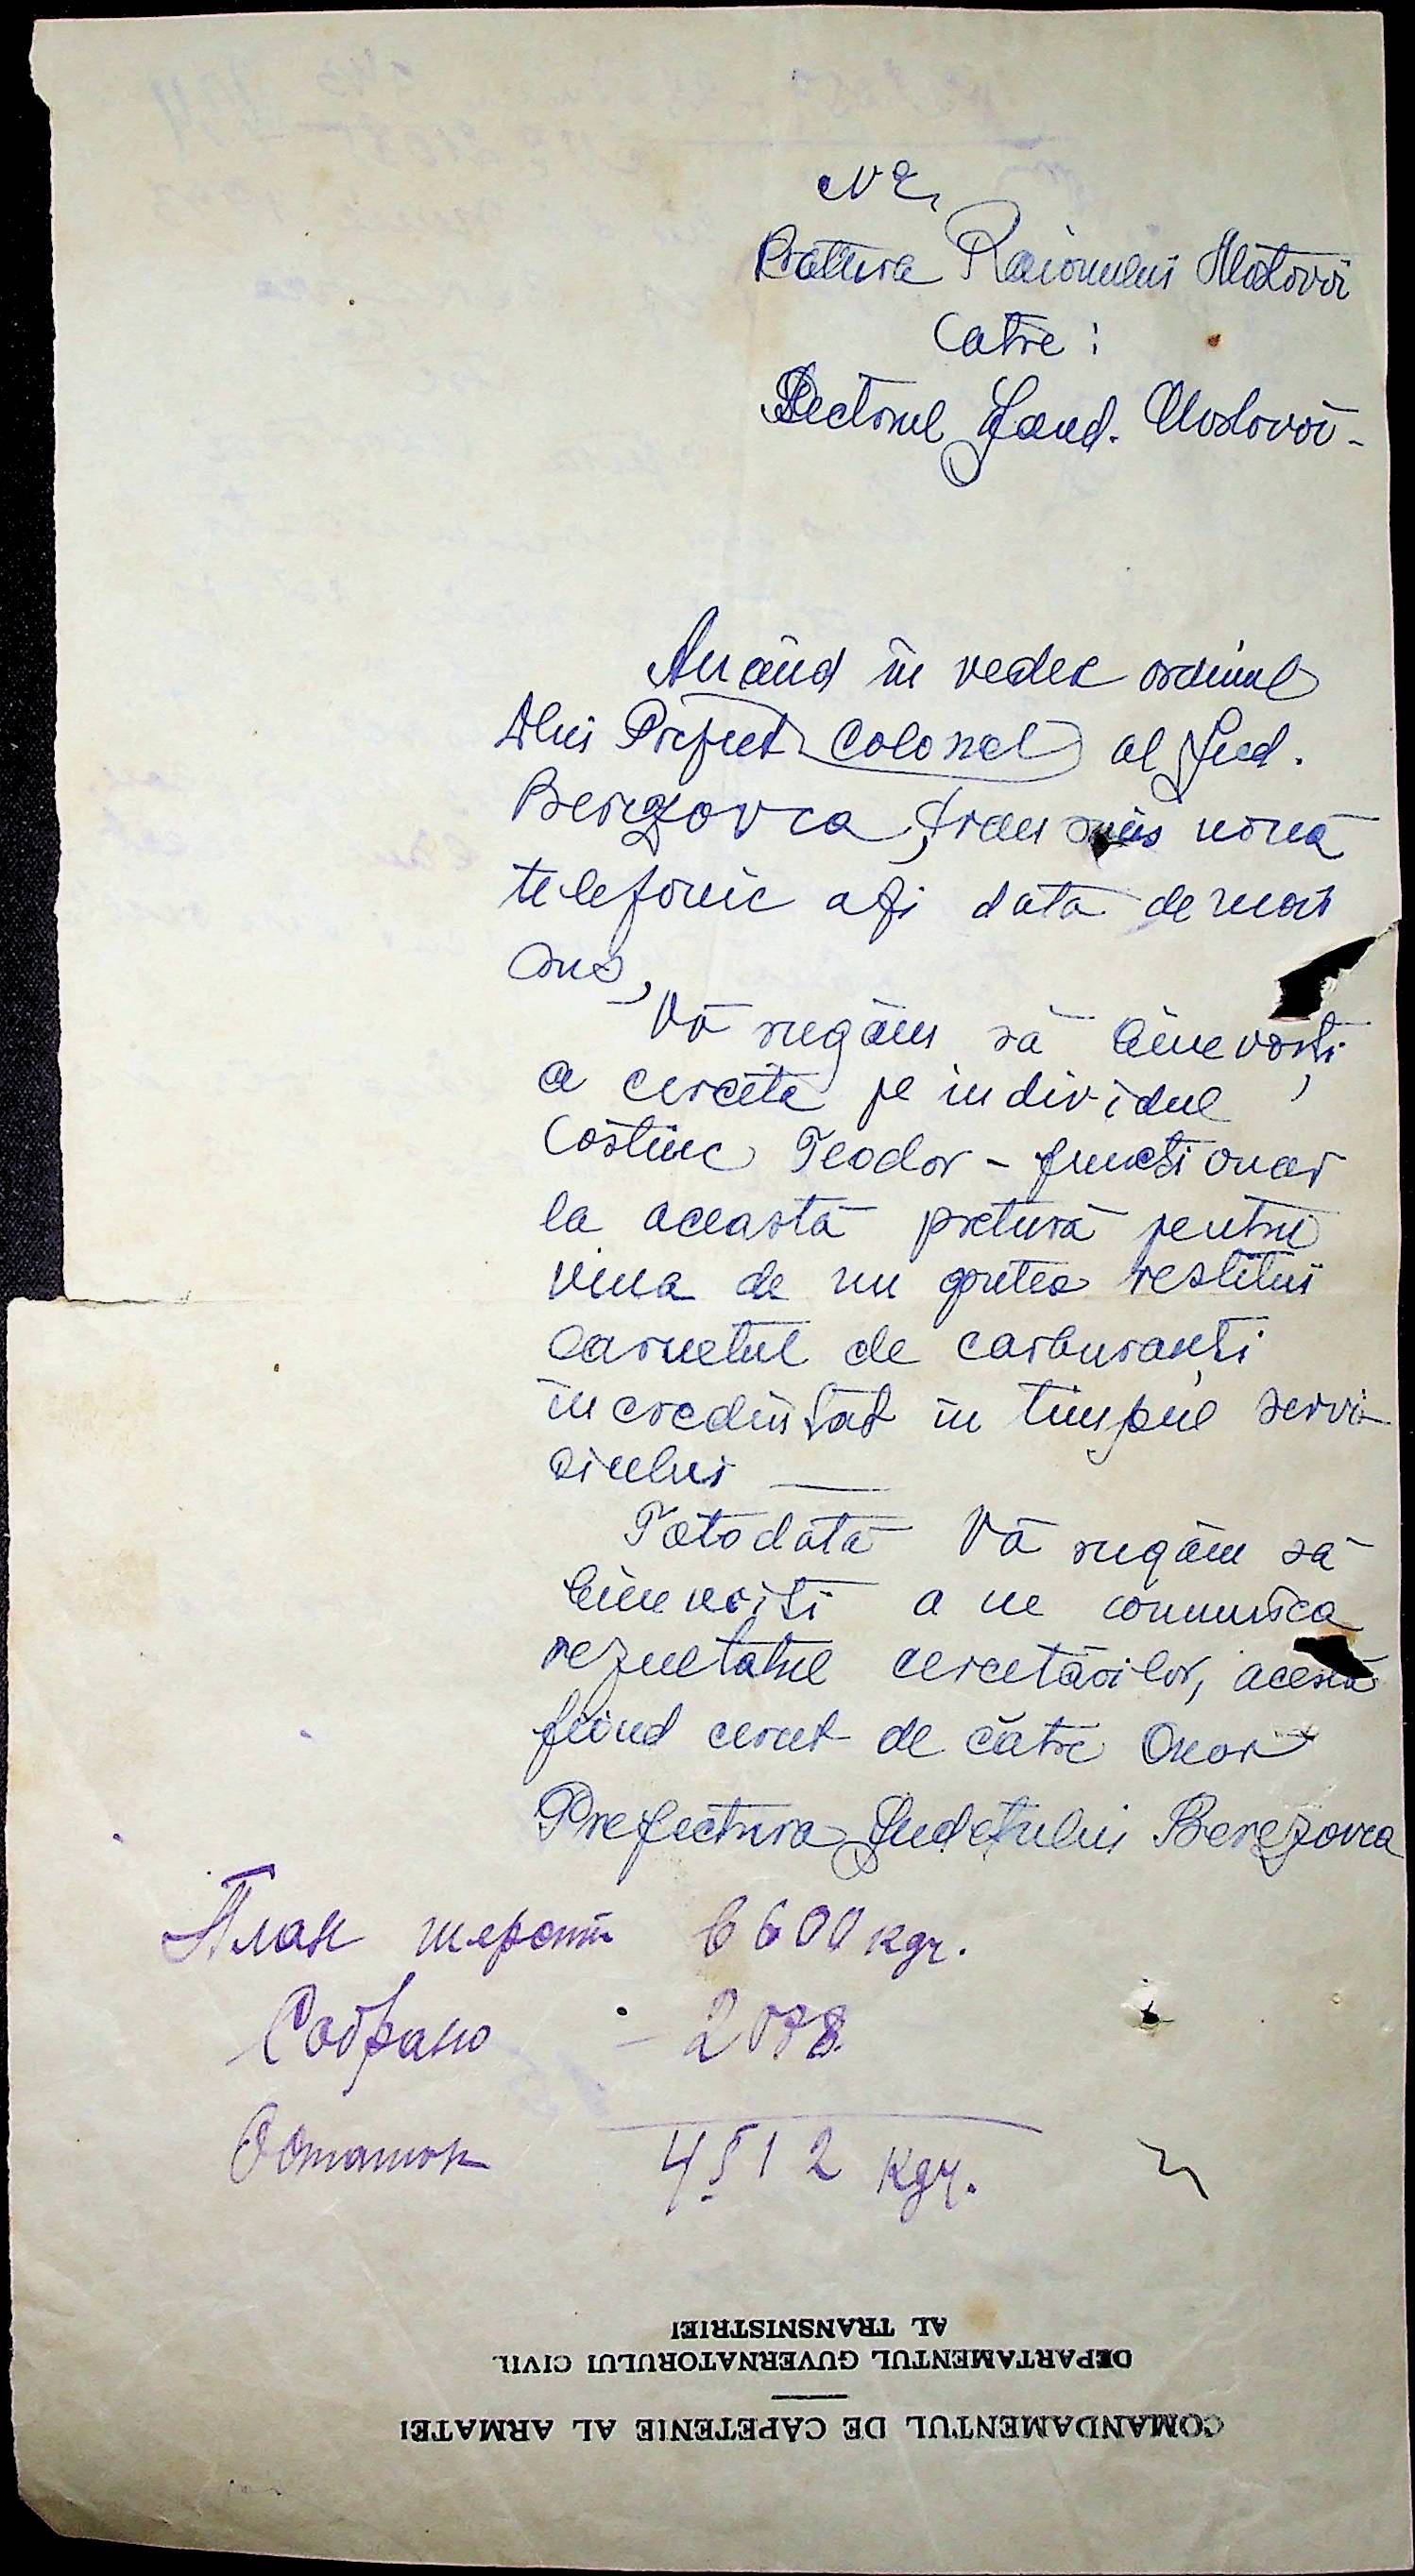 Nr.
Pretura Raionului Mostovoi
Catre :
Sectorul Jand. Mostovoi -
Având in vedere ordinul
Dlui Prefect Colonel al Jud.
Berezovca, transmis nouă
telefonic azi data de mai
sus,
Vă rugăm să binevoiţi
a cerceta pe individul
Costiuc Teodor - funcţionar
la această pretură pentru
vina de nu putea restitui
carnetul de carburanţi
incredinţat in timpul servi-
ciului
Totodată Vă rugăm să
binevoiţi a ne comunica
rezultatul cercetărilor, acesta
fiind cerut de către Onor
Prefectura Judeţului Berezovca
План шерсти 6600 кgr.
Собрано - 2088
Остаток 4512 кgr.
COMANDAMENTUL DE CĂPETENIE AL ARMATEI
DEPARTAMENTUL GUVERNATORULUI CIVIL
AL TRANSNISTRIEI